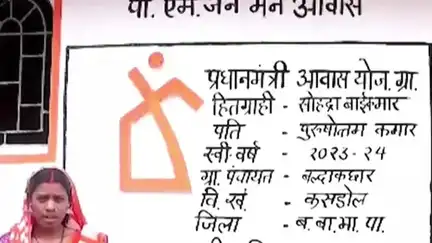 पी. एम. जन मन आवास
प्रधानमंत्री आवास योज. ग्रा.
हितग्राही - सोहद्रा बाई कमार
पति - पुरुषोत्तम कमार
स्वी. वर्ष - २०२३-२४
ग्रा. पंचायत - बल्दाकछार
वि. खं. - कसडोल
जिला - ब. बा. भा. पा.